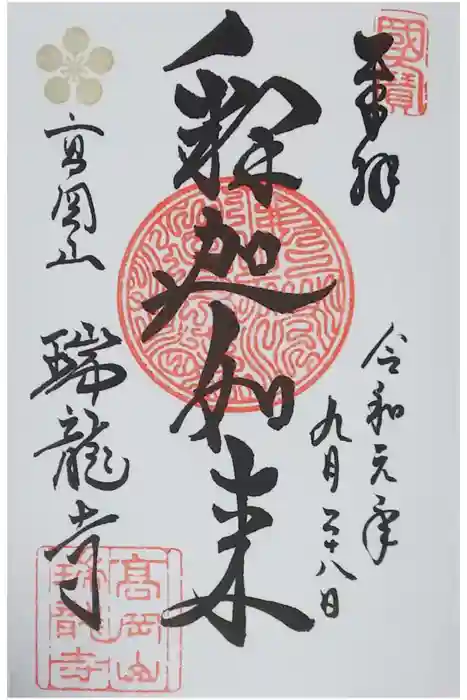 國寶
奉拝
令和元年
九月二十八日
釋迦如来
高岡山
瑞龍寺
高岡山
瑞龍寺